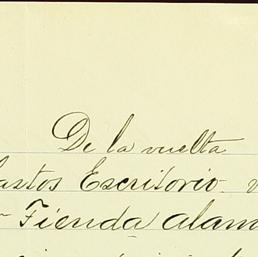 De la vuelta
Gastos Escritorio
Tienda alam